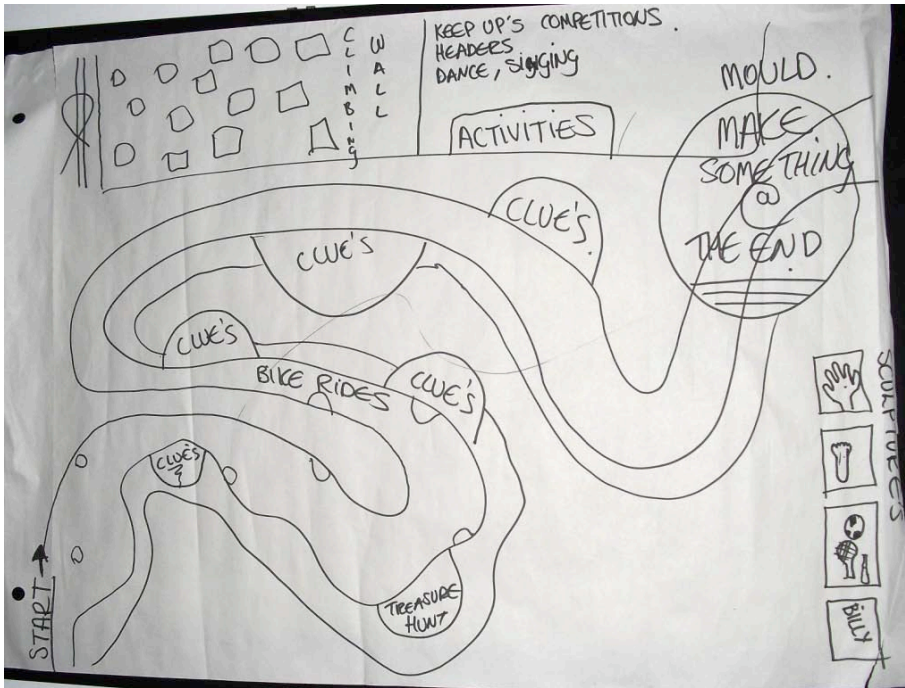 CLIMBING
WALL
KEEP UP'S COMPETITIONS.
HEADERS
DANCE, SIGGING
ACTIVITIES
MOULD.
MAKE
SOMETHING
@
THE END
CLUE'S
CLUE'S
CLUE'S
CLUE'S
BIKE RIDES
CLUE'S
TREASURE
HUNT
START
SCULPTURE'S
BILLY